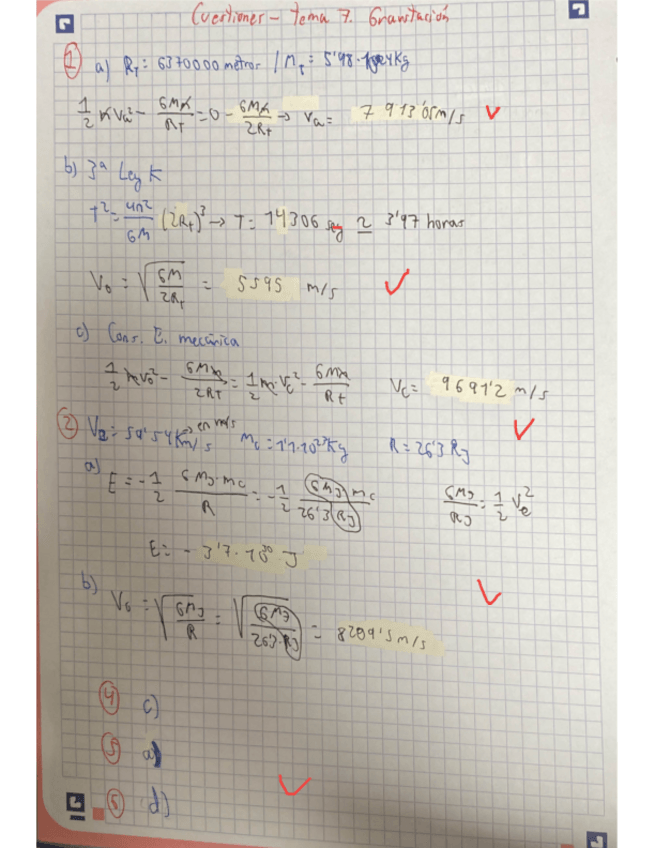 Cuestiones - tema 7. Gravitación
① a) R_T = 6370000 metros / M_T = 5'98·10^24 Kg
1/2 m v_a² - GMm/R_T = 0 - GMm/2R_T → v_a = 7913'05 m/s ✓
b) 3ª Ley K
T² = 4π²/GM (2R_T)³ → T = 14306 seg ≃ 3'97 horas
V_o = √(GM/2R_T) = 5595 m/s ✓
c) Cons. E. mecánica
1/2 m v_o² - GMm/2R_T = 1/2 m v_c² - GMm/R_T V_c = 9691'2 m/s
✓
② V_e = 59'54 Km/s en m/s M_c = 1'1·10^23 Kg R = 26'3 R_J
a) E = -1/2 GM_J·m_c/R = -1/2 GM_J m_c/26'3 R_J GM_J/R_J = 1/2 V_e²
E = - 3'7·10^30 J
✓
b) V_o = √(GM_J/R) = √(GM_J/26'3·R_J) = 8209'5 m/s
④ c)
⑤ a)
✓
⑤ d)